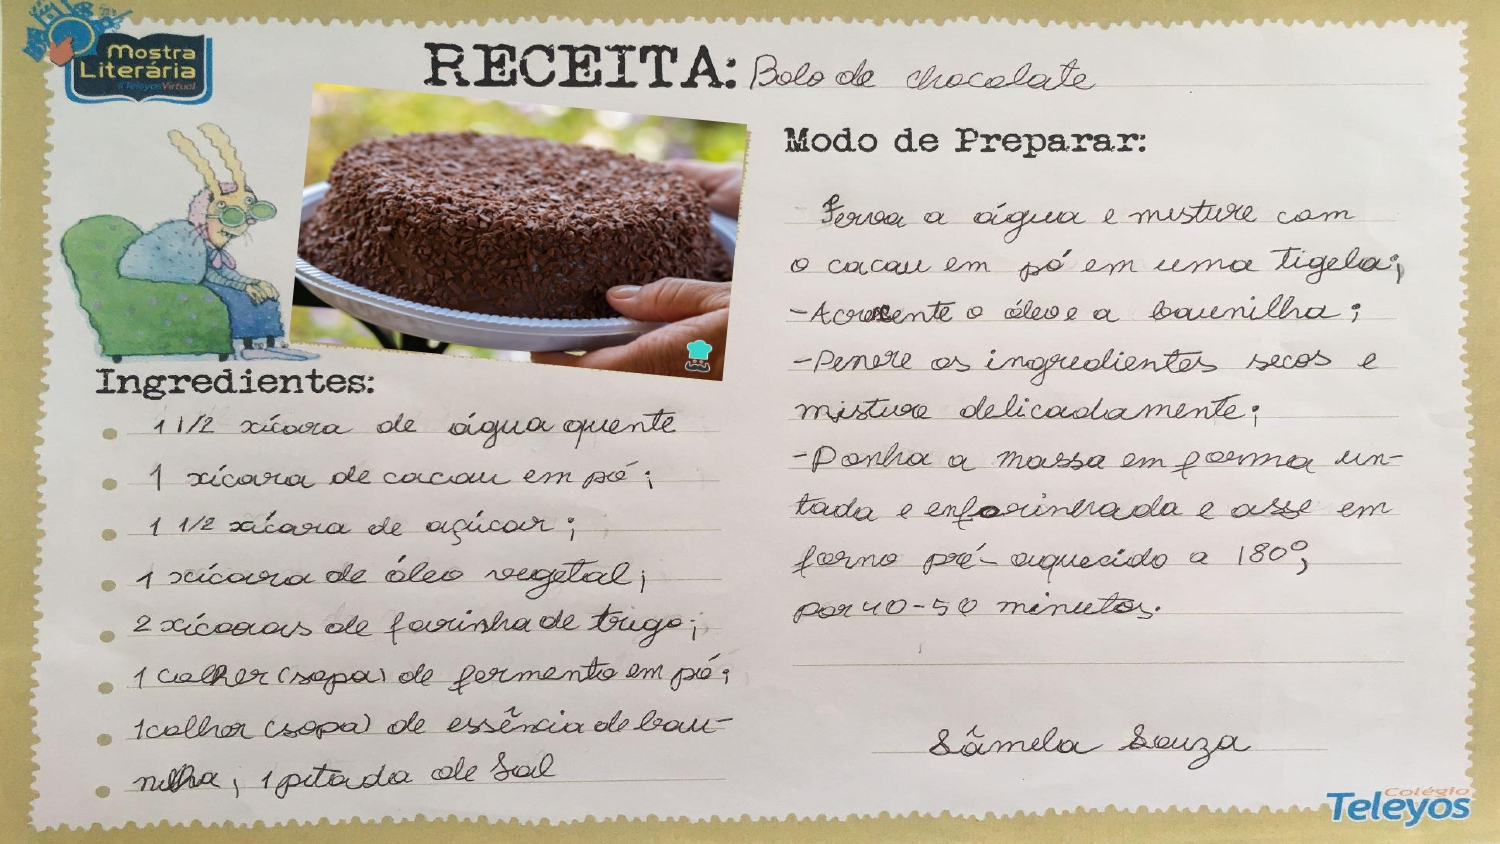 Mostra
Literária
#TeleyosVirtual
RECEITA: Bolo de chocolate
Ingredientes:
1 1/2 xícara de água quente
1 xícara de cacau em pó;
1 1/2 xícara de açúcar;
1 xícara de óleo vegetal;
2 xícaras de farinha de trigo;
1 colher (sopa) de fermento em pó;
1 colher (sopa) de essência de bau-
nilha, 1 pitada de sal
Modo de Preparar:
- Ferva a água e misture com
o cacau em pó em uma tigela;
- Acresente o óleo e a baunilha;
- Penere os ingredientes secos e
misture delicadamente;
- Ponha a massa em forma un-
tada e enfarinhada e asse em
forno pré-aquecido a 180º,
por 40-50 minutos.
Sâmela Souza
Colégio
Teleyos